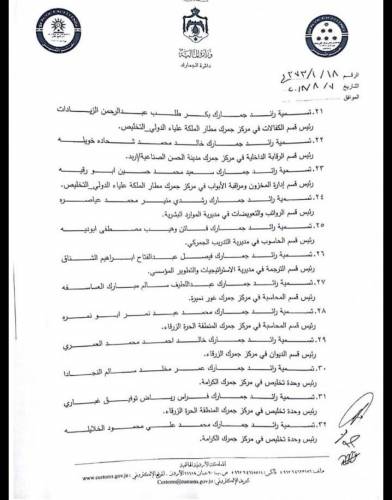 وزارة المالية
دائرة الجمارك
الرقم ٢٧٣/١/١٨
التاريخ
الموافق
٢١. تسمية رائد جمارك بكر طلب عبدالرحمن الزيادات
رئيس قسم الكفالات في مركز جمرك مطار الملكة علياء الدولي_التخليص.
٢٢. تسمية رائد جمارك خالد محمد شحاده خويله
رئيس قسم الرقابة الداخلية في مركز جمرك مدينة الحسن الصناعية/اربد.
٢٣. تسمية رائد جمارك سعيد محمد حسين ابو رقيه
رئيس قسم إدارة المخزون ومراقبة الأبواب في مركز جمرك مطار الملكة علياء الدولي_التخليص.
٢٤. تسمية رائد جمارك رشدي منير محمد عياصره
رئيس قسم الرواتب والتعويضات في مديرية الموارد البشرية.
٢٥. تسمية رائد جمارك فاتن وهيب مصطفى ابوديه
رئيس قسم الحاسوب في مديرية التدريب الجمركي.
٢٦. تسمية رائد جمارك فيصل عبدالفتاح ابراهيم الشناق
رئيس قسم الترجمة في مديرية الاستراتيجيات والتطوير المؤسسي.
٢٧. تسمية رائد جمارك عبداللطيف سالم مبارك العساسفه
رئيس قسم المحاسبة في مركز جمرك غور نميرة.
٢٨. تسمية رائد جمارك محمد عبد نمر ابو نمره
رئيس قسم المحاسبة في مركز جمرك المنطقة الحرة الزرقاء.
٢٩. تسمية رائد جمارك خالد احمد محمد العمري
رئيس قسم الديوان في مركز جمرك الزرقاء.
٣٠. تسمية رائد جمارك عمر مخلد سالم النجادا
رئيس وحدة تخليص في مركز جمرك الكرامة.
٣١. تسمية رائد جمارك فراس رياض توفيق غباري
رئيس وحدة تخليص في مركز جمرك المنطقة الحرة الزرقاء.
٣٢. تسمية رائد جمارك محمد علي محمود الخلايله
رئيس وحدة تخليص في مركز جمرك الكرامة.
المملكة الأردنية الهاشمية
www.customs.gov.jo
Customs@customs.gov.jo